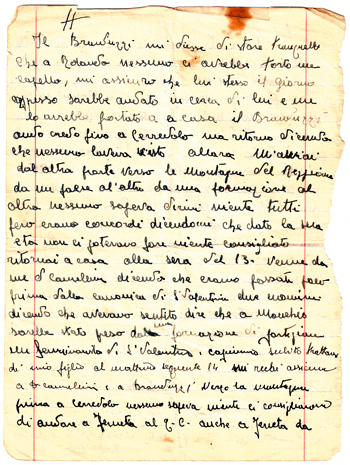 Il Branduzzi mi disse di stare tranquillo
che a Rolando nessuno ci avrebbe torto un
capello, mi assicurò che lui stesso il giorno
appresso sarebbe andato in cerca di lui e me
lo avrebbe portato a casa il Branduzzi
andò credo fino a Cerredolo ma ritornò dicendo
che nessuno l'aveva visto allora m'avviai
dal altra parte verso le montagne del Reggiano
da un paese al'altro da una formazione al
altra nessuno sapeva dirmi niente tutti
però erano concordi dicendomi che dato la sua
età non ci potevano fare niente consigliato
ritornai a casa alla sera del 13- venne da
me dicendo che erano passati poco
prima dalla canonica di S. Valentino due uomini
dicendo che avevano sentito dire che a Monchio
sarebbe stato preso da una formazione di partigiani
un Seminarista di S. Valentino, capimmo subito trattarsi
di mio figlio al mattino seguente 14 mi recai assieme
a Camellini, e a Branduzzi verso la montagna
prima a Cerredolo nessuno sapeva niente ci consigliarono
di andare a al anche a da